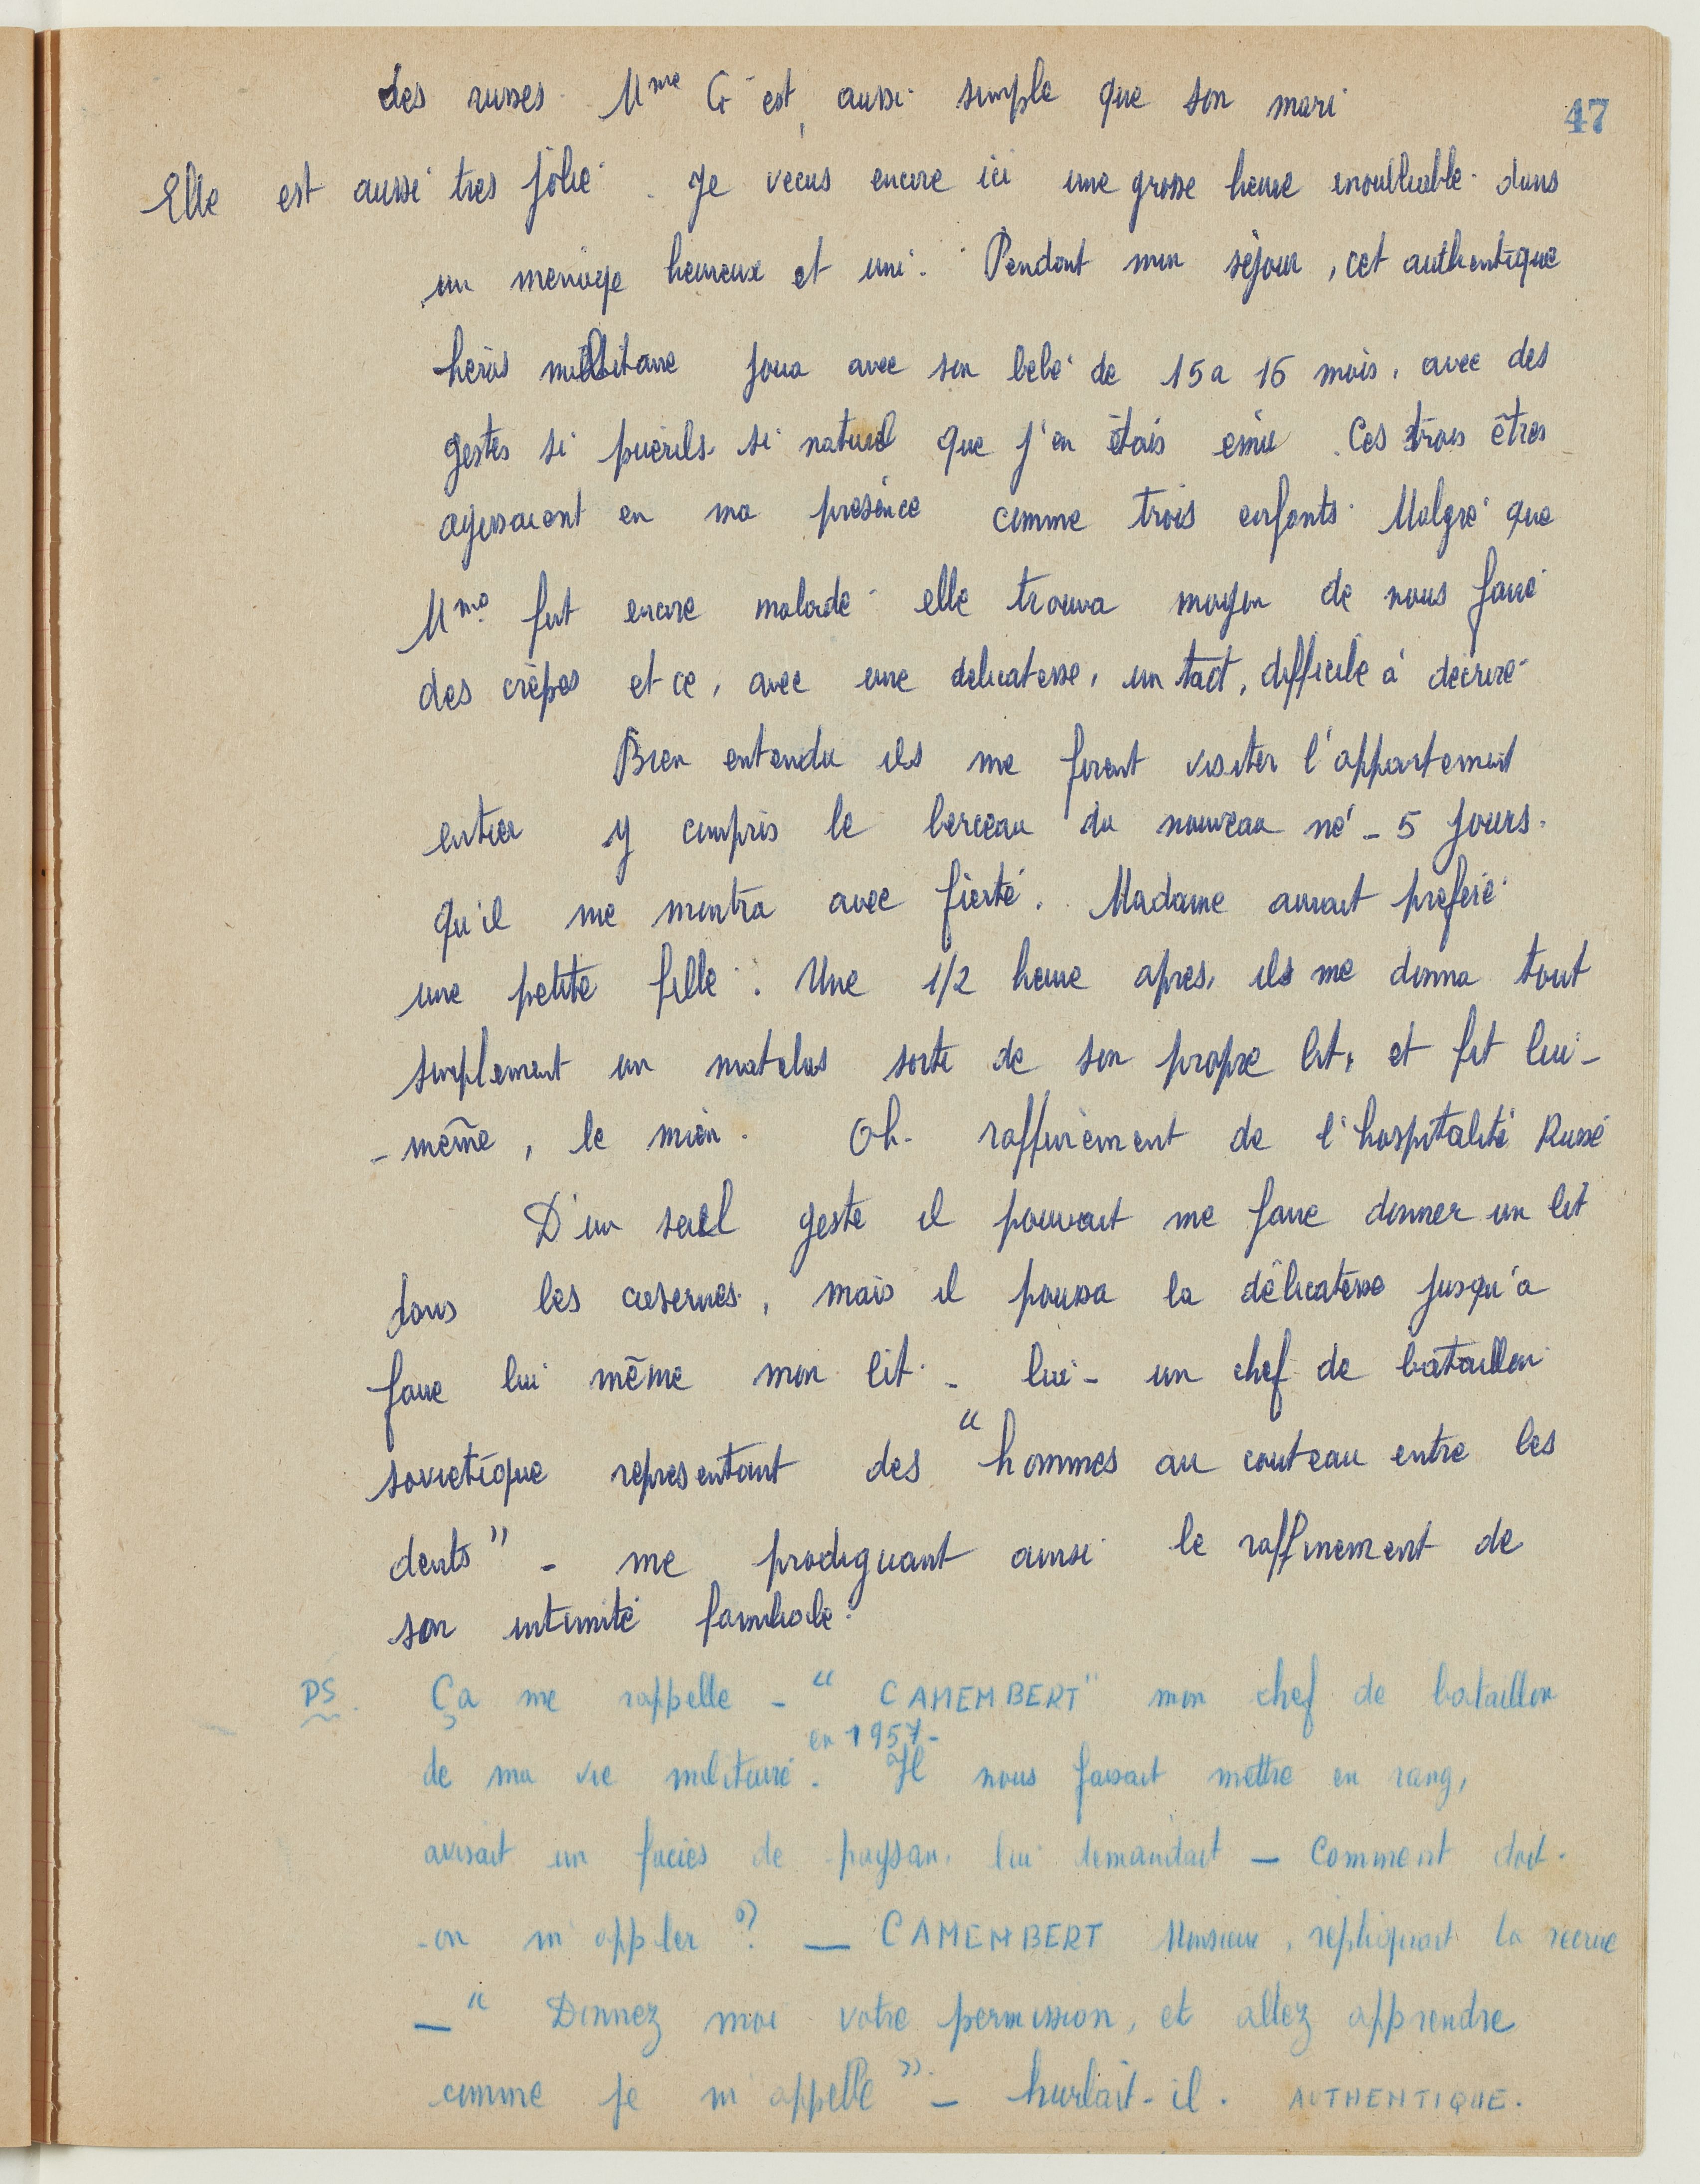 47
des russes. Mme G est aussi simple que son mari
Elle est aussi tres jolie. Je vecus encore ici une grosse heure inoubliable dans
un menage heureux et uni. Pendant mon séjour, cet authentique
heros militaire joua avec son bebé de 15 a 16 mois, avec des
gestes si puerils. si naturel que j'en étais emu. Ces trois êtres
agissaient en ma présence comme trois enfants. Malgré que
Mme fut encore malade elle trouva moyen de nous faire
des crèpes et ce, avec une delicatesse, un tact, difficile à decrire.
Bien entendu ils me firent visiter l'appartement
entier y compris le berceau du nouveau né - 5 jours.
qu'il me montra avec fierté. Madame aurait preferé
une petite fille. Une 1/2 heure apres, ils me donna tout
simplement un matelas sorti de son propre lit, et fit lui-
- même, le mien. Oh. raffinement de l'hospitalité Russe
D'un seul geste il pouvait me faire donner un lit
dans les casernes, mais il poussa la délicatesse jusqu'a
faire lui même mon lit - lui - un chef de bataillon
sovietique representant des "hommes au couteau entre les
dents" - me prodiguant ainsi le raffinement de
son intimité familiale.
PS. Ça me rappelle - "CAMEMBERT" mon chef de bataillon
en 1957-
de ma vie militaire. Il nous faisait mettre en rang,
avisait un facies de paysan, lui demandait — Comment doit-
-on m'appler ? — CAMEMBERT Monsieur, repliquait la recrue
— "Donnez moi votre permission, et allez apprendre
comme je m'appelle" - hurlait-il. AUTHENTIQUE.